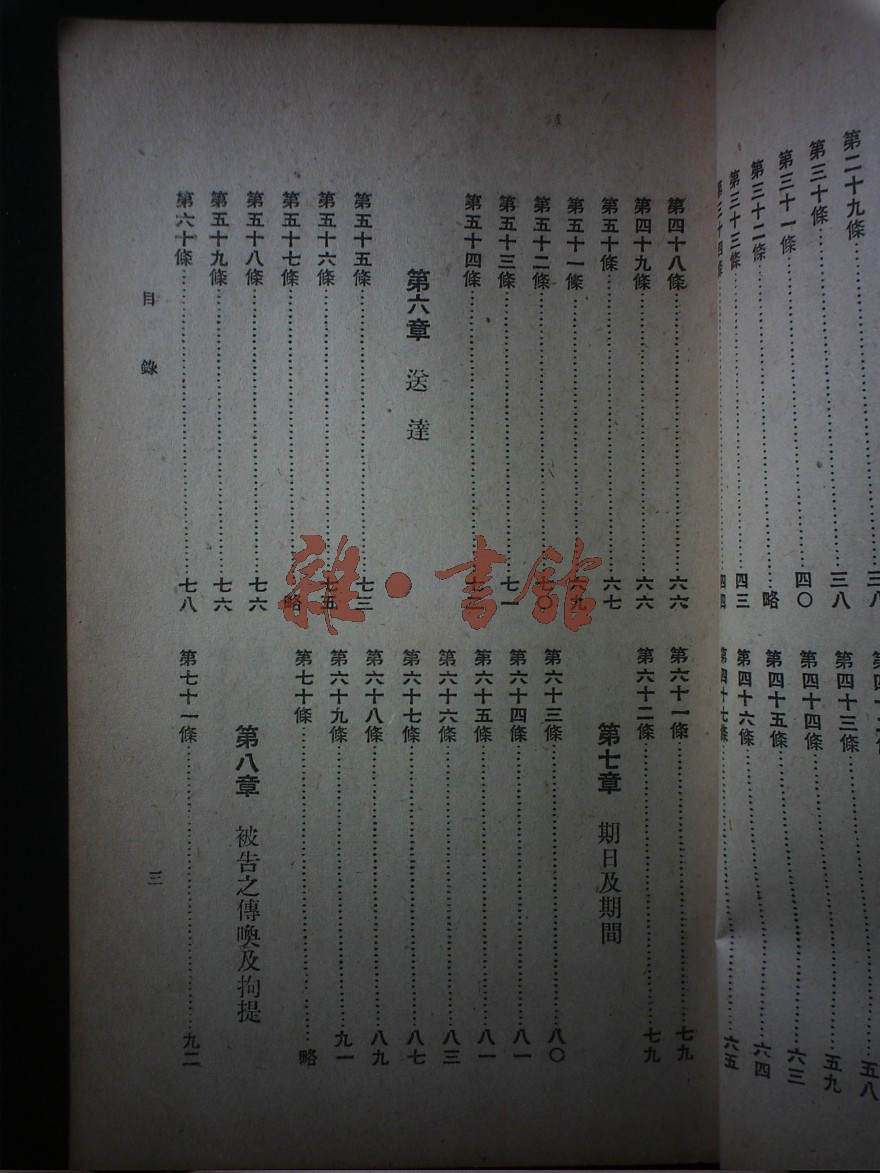 第二十九條 三八
第三十條 三八
第三十一條 四〇
第三十二條 略
第三十三條 四三
第三十四條 四四
第四十三條 五九
第四十四條 六三
第四十五條 六四
第四十六條 六五
第四十七條
第四十八條 六六
第四十九條 六六
第五十條 六七
第五十一條 六九
第五十二條 七〇
第五十三條 七一
第五十四條
第六章 送達
第五十五條 七三
第五十六條 七五
第五十七條 略
第五十八條 七六
第五十九條 七六
第六十條 七八
第六十一條 七九
第六十二條 七九
第七章 期日及期間
第六十三條 八〇
第六十四條 八一
第六十五條 八一
第六十六條 八三
第六十七條 八七
第六十八條 八九
第六十九條 九一
第七十條 略
第八章 被告之傳喚及拘提
第七十一條 九二
目錄 三
雜·書館